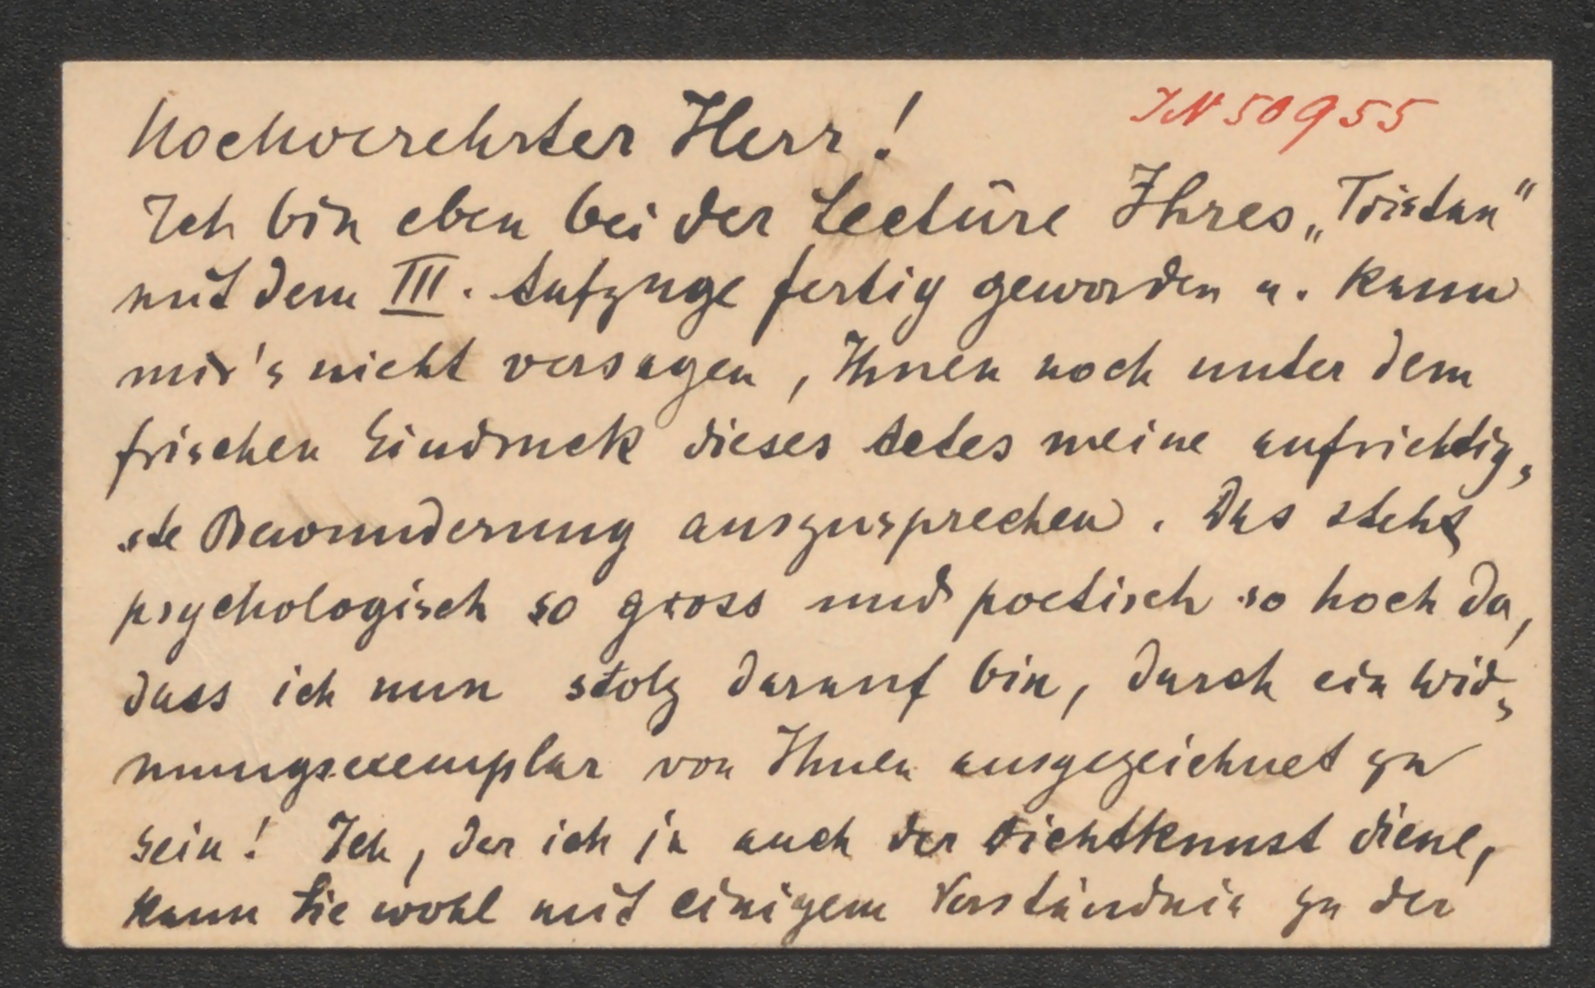 Hochverehrter Herr!
IN 50955
Ich bin eben bei der Lectüre Ihres „Tristan“
mit dem III. Aufzuge fertig geworden u. kann
mir's nicht versagen, Ihnen noch unter dem
frischen Eindruck dieses Actes meine aufrichtig-
ste Bewunderung auszusprechen. Das steht
psychologisch so gross und poetisch so hoch da,
dass ich nun stolz darauf bin, durch ein Wid-
mungsexemplar von Ihnen ausgezeichnet zu
sein! Ich, der ich ja auch der Dichtkunst diene,
kann Sie wohl mit einigem Verständnis zu der